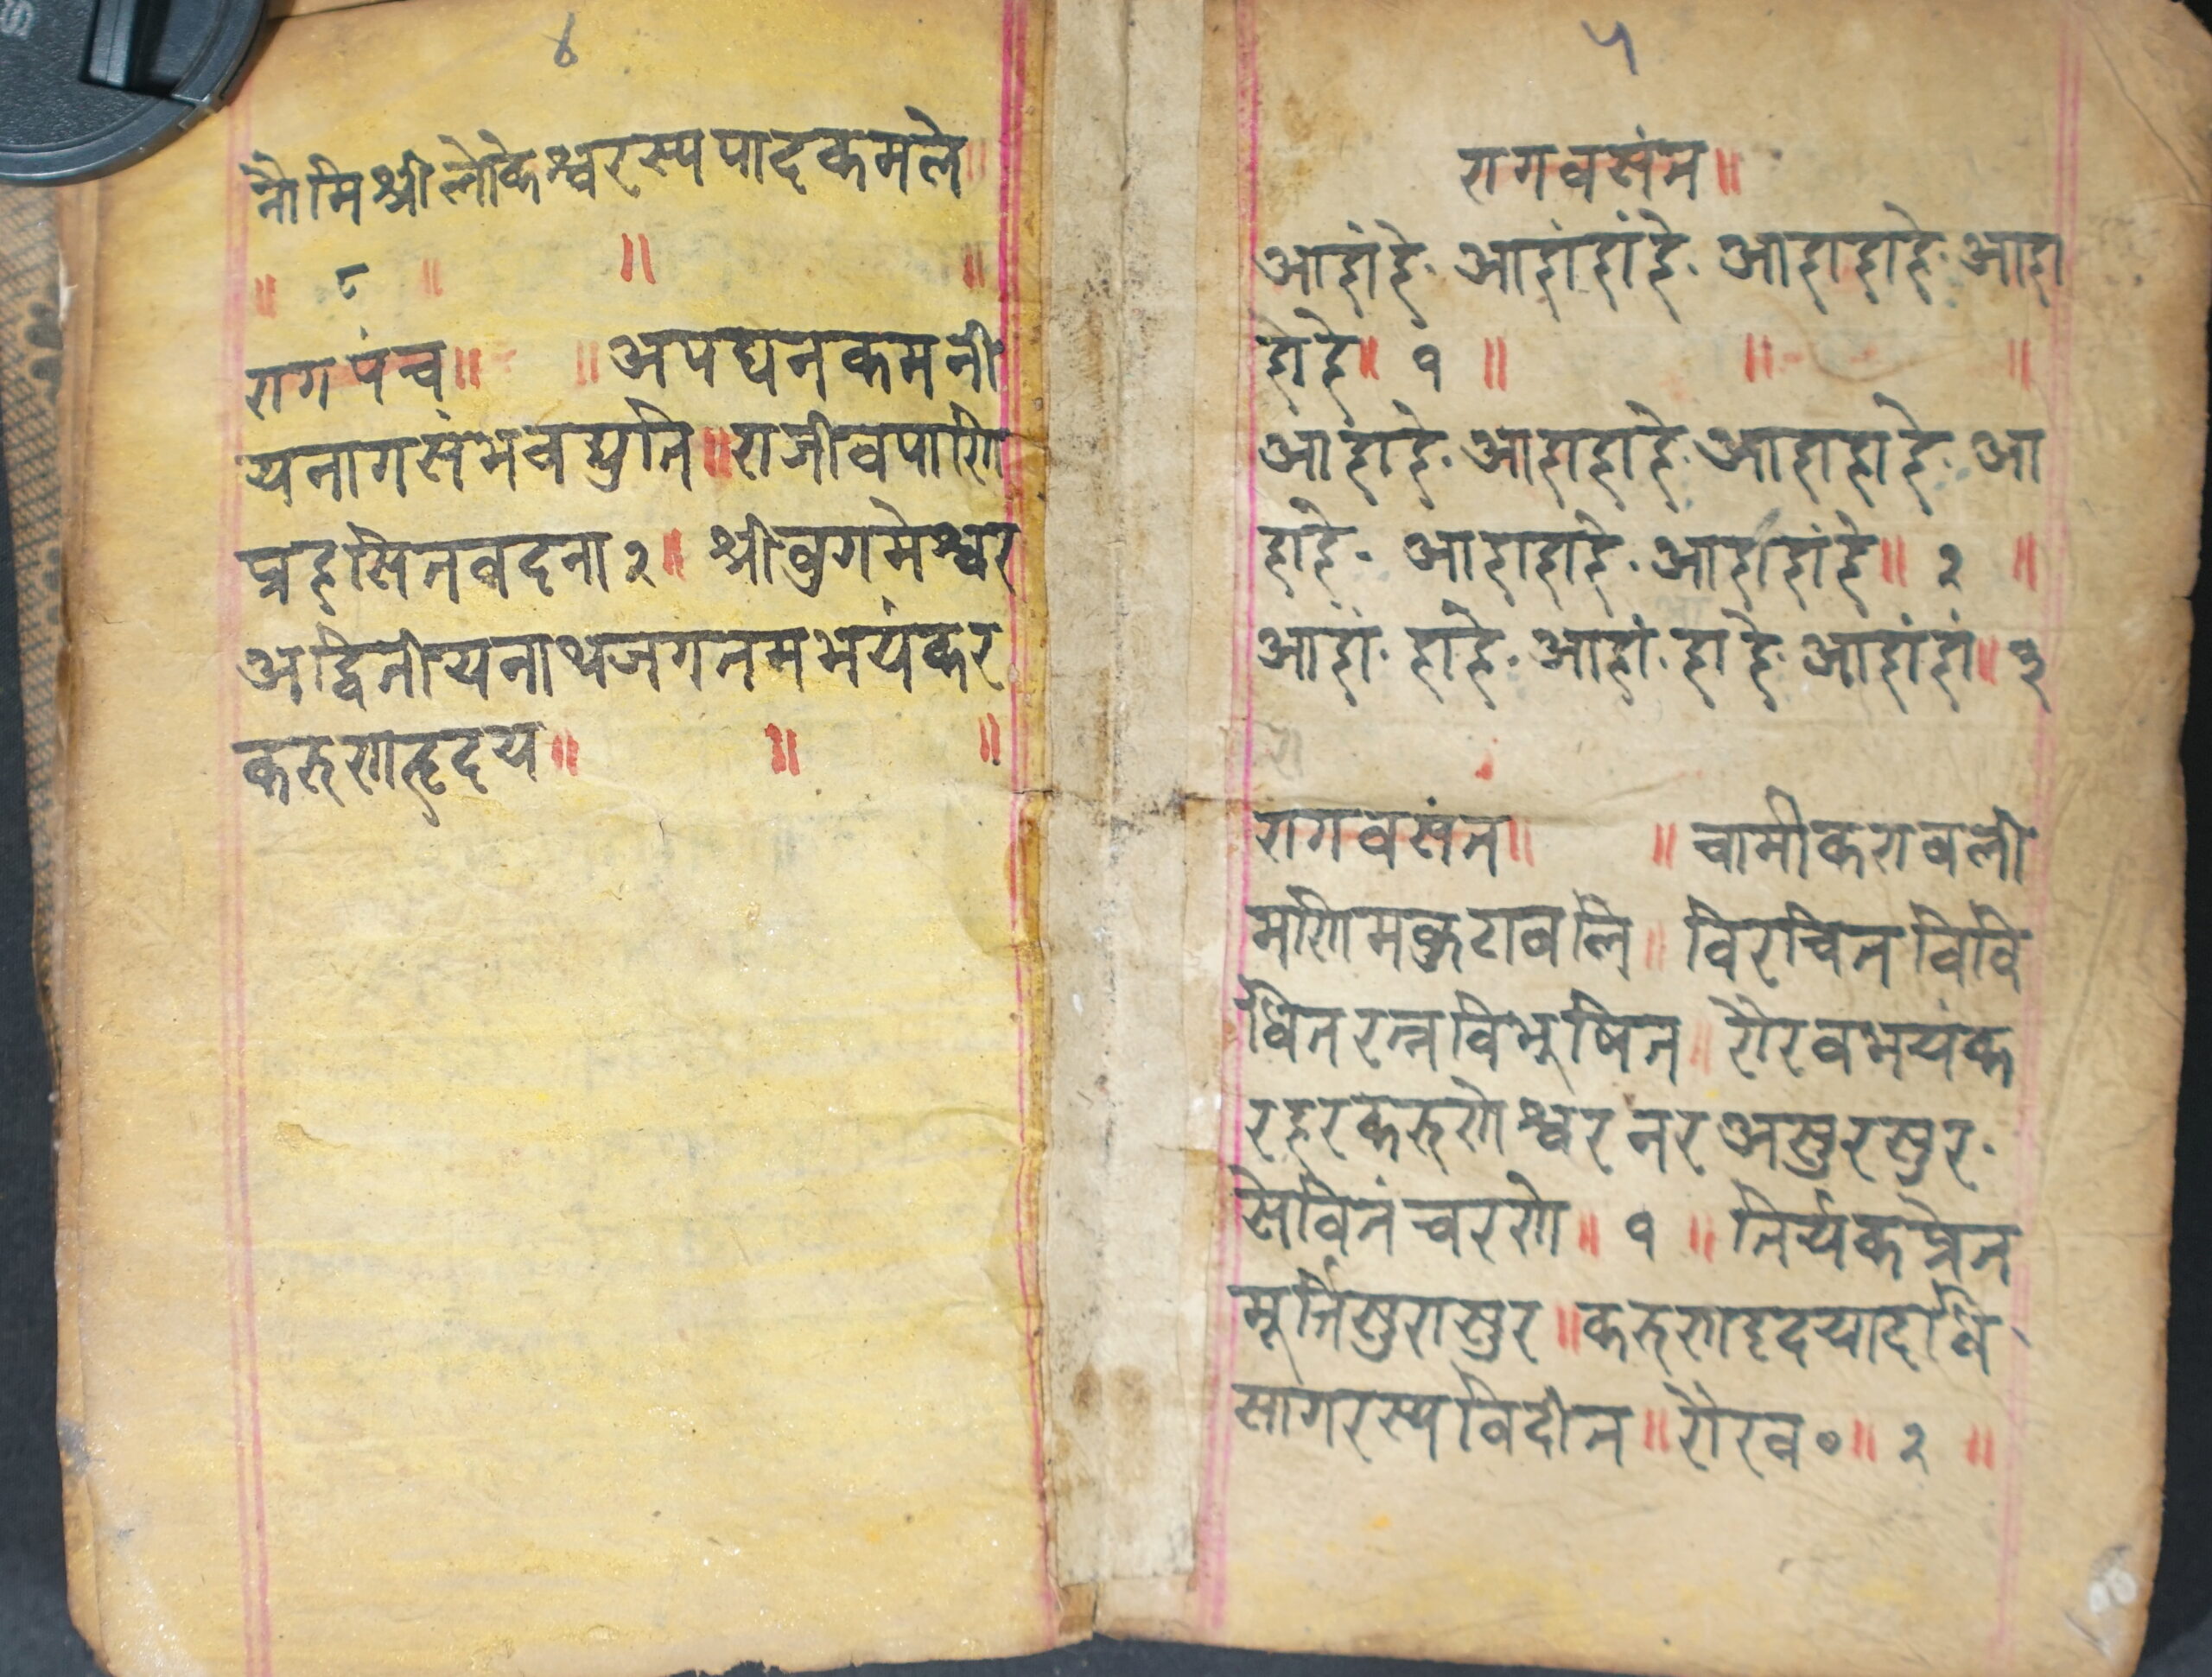 ४
नौमिश्रीलोकेश्वरस्यपादकमले॥
॥ ८ ॥ ॥ ॥
रागपंच॥ ॥अपघनकमनी
यनागसंभवद्युति॥राजीवपाणि
प्रहसितवदना२॥ श्रीवुगमेश्वर
अद्वितीयनाथजगतमभयंकर
करुणाहृदय॥ ॥ ॥
५
रागवसंत॥
आहांहे· आहांहांहे· आहाहाहे· आहा
हाहे॥ १ ॥ ॥ ॥
आहाहे· आहाहाहे· आहाहाहे· आ
हाहे· आहाहाहे· आहाहांहे॥ २ ॥
आहां· हाहे· आहां· हाहे· आंहांहां॥ ३
रागवसंत॥ ॥चामीकरावली
मणिमकुटावलि॥ विरचितविवि
धितरत्नविभुषित॥रौरवभयंक
रहरकरुणेश्वरनरअसुरसुर·
सेवितंचरणे॥ १ ॥तिर्यकप्रेत
मूर्त्तिसुरासुर॥करुणाहृदयादधि
सागरस्यविदीत॥रौरव०॥ २ ॥